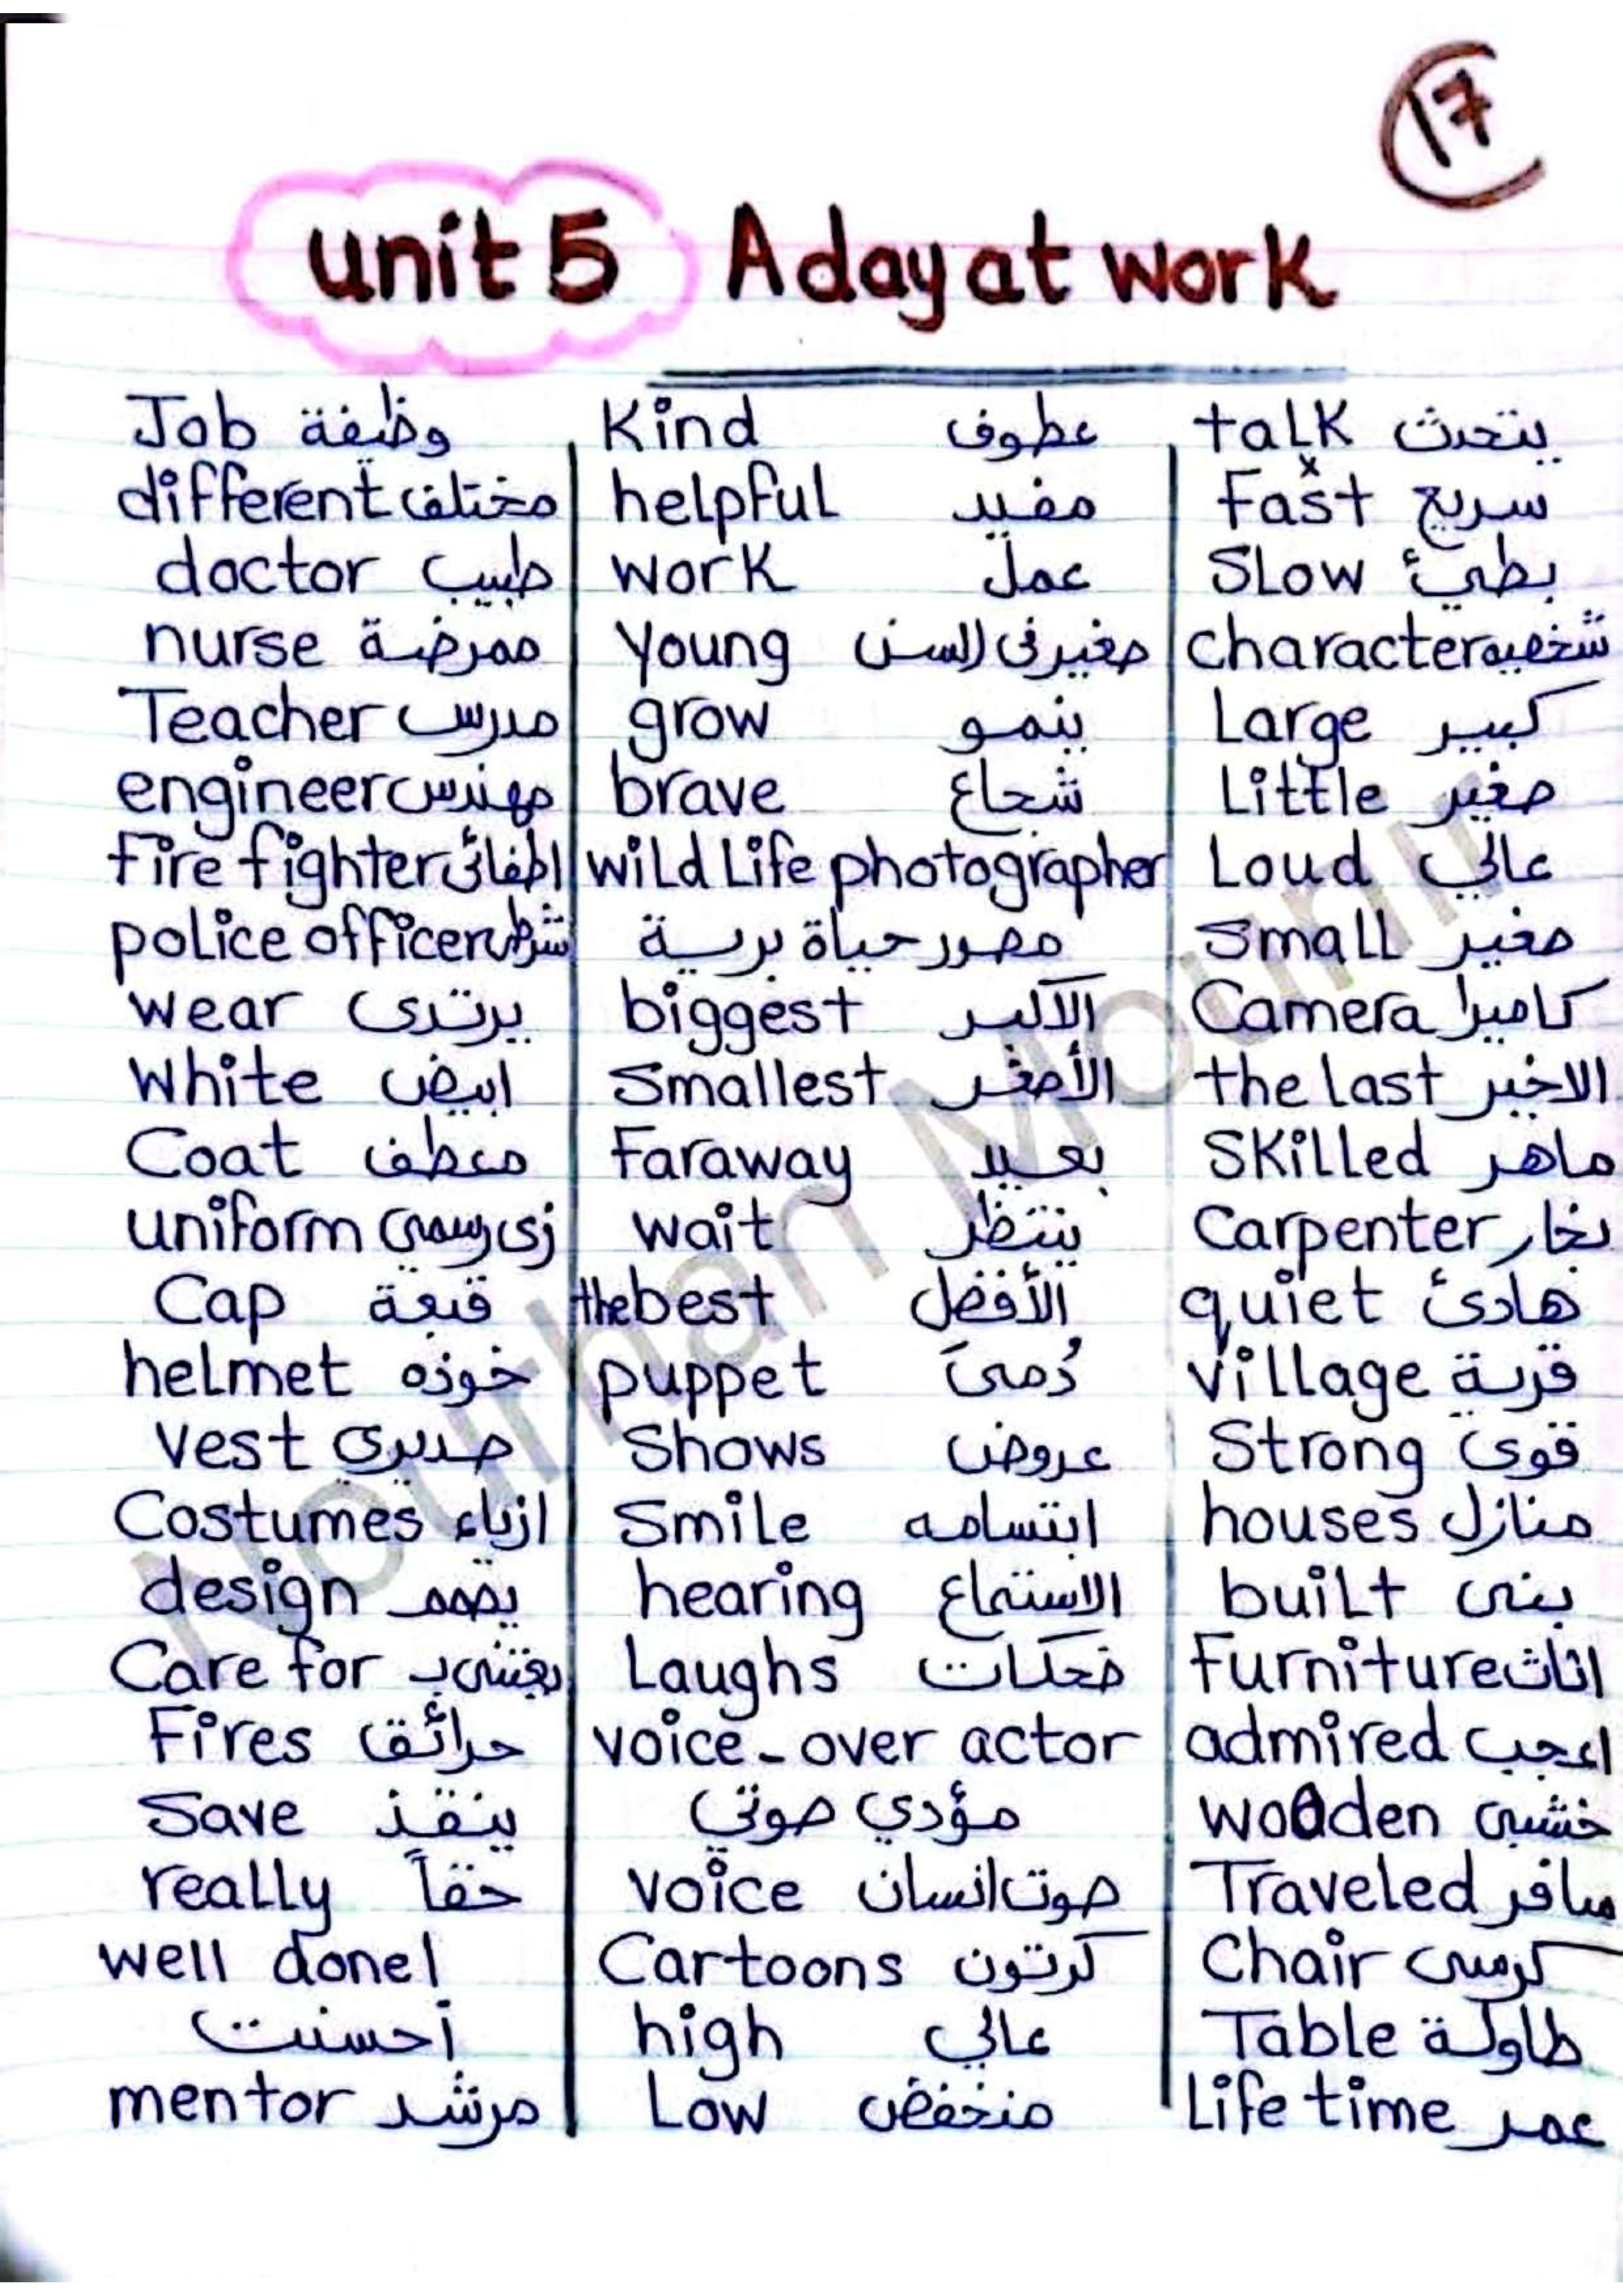 17
unit 5 A day at work
Job وظيفة
different مختلف
doctor طبيب
nurse ممرضة
Teacher مدرس
engineer مهندس
fire fighter اطفائى
police officer شرطى
wear يرتدى
white ابيض
Coat معطف
uniform زى رسمي
Cap قبعة
helmet خوذه
vest صديرى
Costumes ازياء
design يصمم
Care for يعتنى ب
Fires حرائق
Save ينقذ
really حقاً
well done!
أحسنت
mentor مرشد
Kind عطوف
helpful مفيد
work عمل
young صغير فى السن
grow ينمو
brave شجاع
wild Life photographer
مصور حياة برية
biggest الأكبر
Smallest الأصغر
Faraway بعيد
wait ينتظر
the best الأفضل
puppet دُمىَ
Shows عروض
Smile ابتسامه
hearing الاستماع
Laughs ضحكات
voice-over actor
مؤدي صوتي
voice صوت انسان
Cartoons كرتون
high عالي
Low منخفض
talk يتحدث
x
Fast سريع
Slow بطئ
character شخصيه
Large كبير
Little صغير
Loud عالي
Small صغير
Camera كاميرا
the last الاخير
Skilled ماهر
Carpenter نجار
quiet هادئ
village قرية
Strong قوى
houses منازل
built بنى
Furniture اثاث
admired اعجب
wooden خشبى
Traveled سافر
Chair كرسى
Table طاولة
Life time عمر